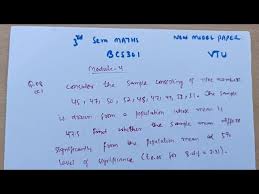 3rd Sem MATHS NEW MODEL PAPER
BCS301 VTU
Module-4
Q.08
Consider the Sample consisting of nine numbers
45, 47, 50, 52, 48, 47, 49, 53, 51. The sample
is drawn from a population whose mean is
47.5 Find whether the Sample mean differs
significantly from the population mean at 5%
level of significance (t0.05 for 8 d.f = 2.31).